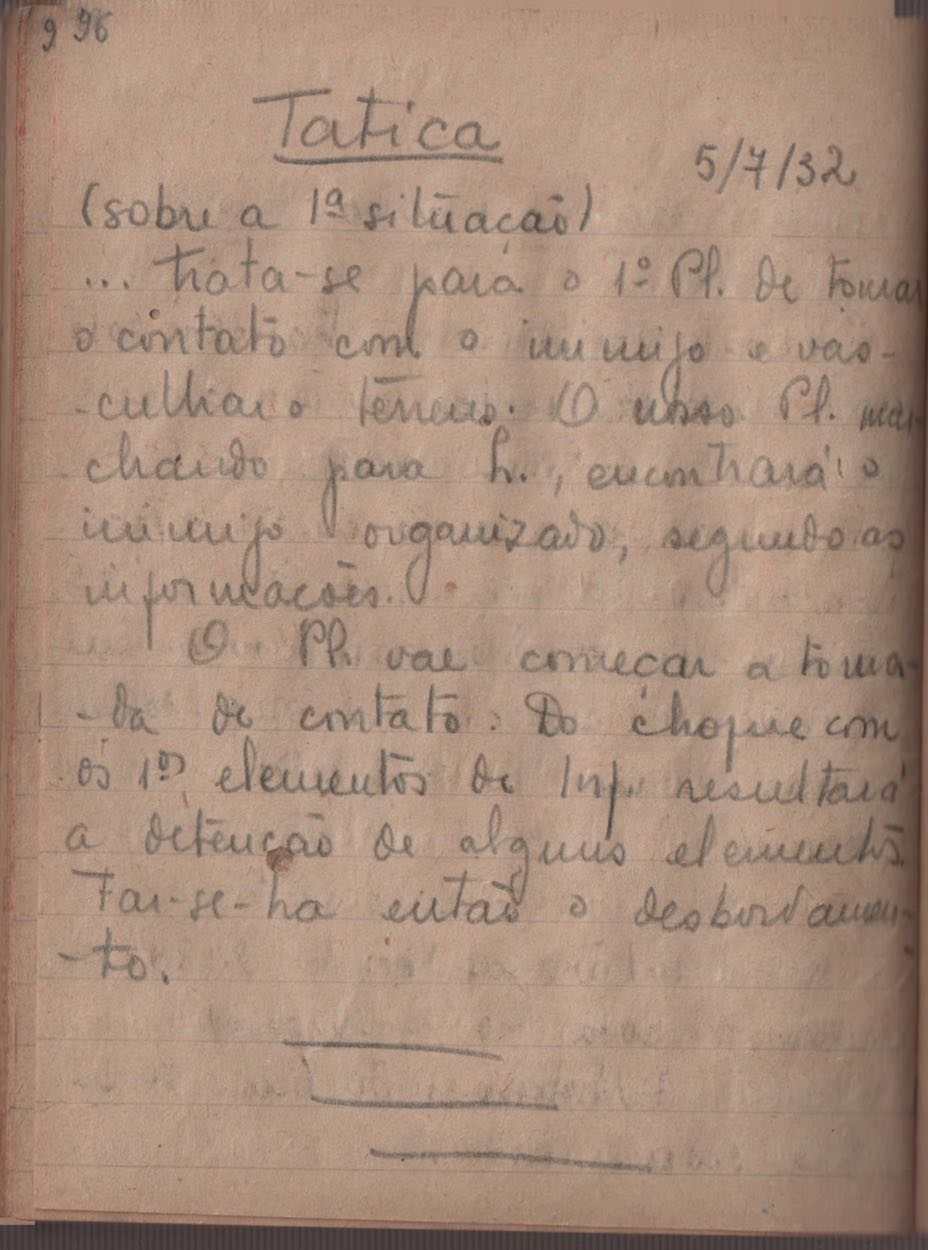 9 96
Tatica
5/7/32
(sobre a 1ª situação)
... trata-se para o 1º Pl. de tomar
o contato com o inimigo e vas-
-culhar o terreno. O nosso Pl. mar-
chando para h., encontrará o
inimigo organizado, segundo as
informações.
O Pl. vae começar a toma-
-da de contato. Do choque com
os 1ºs elementos de Inf. resultará
a detenção de alguns elementos.
Far-se-ha então o desbordamen-
-to.